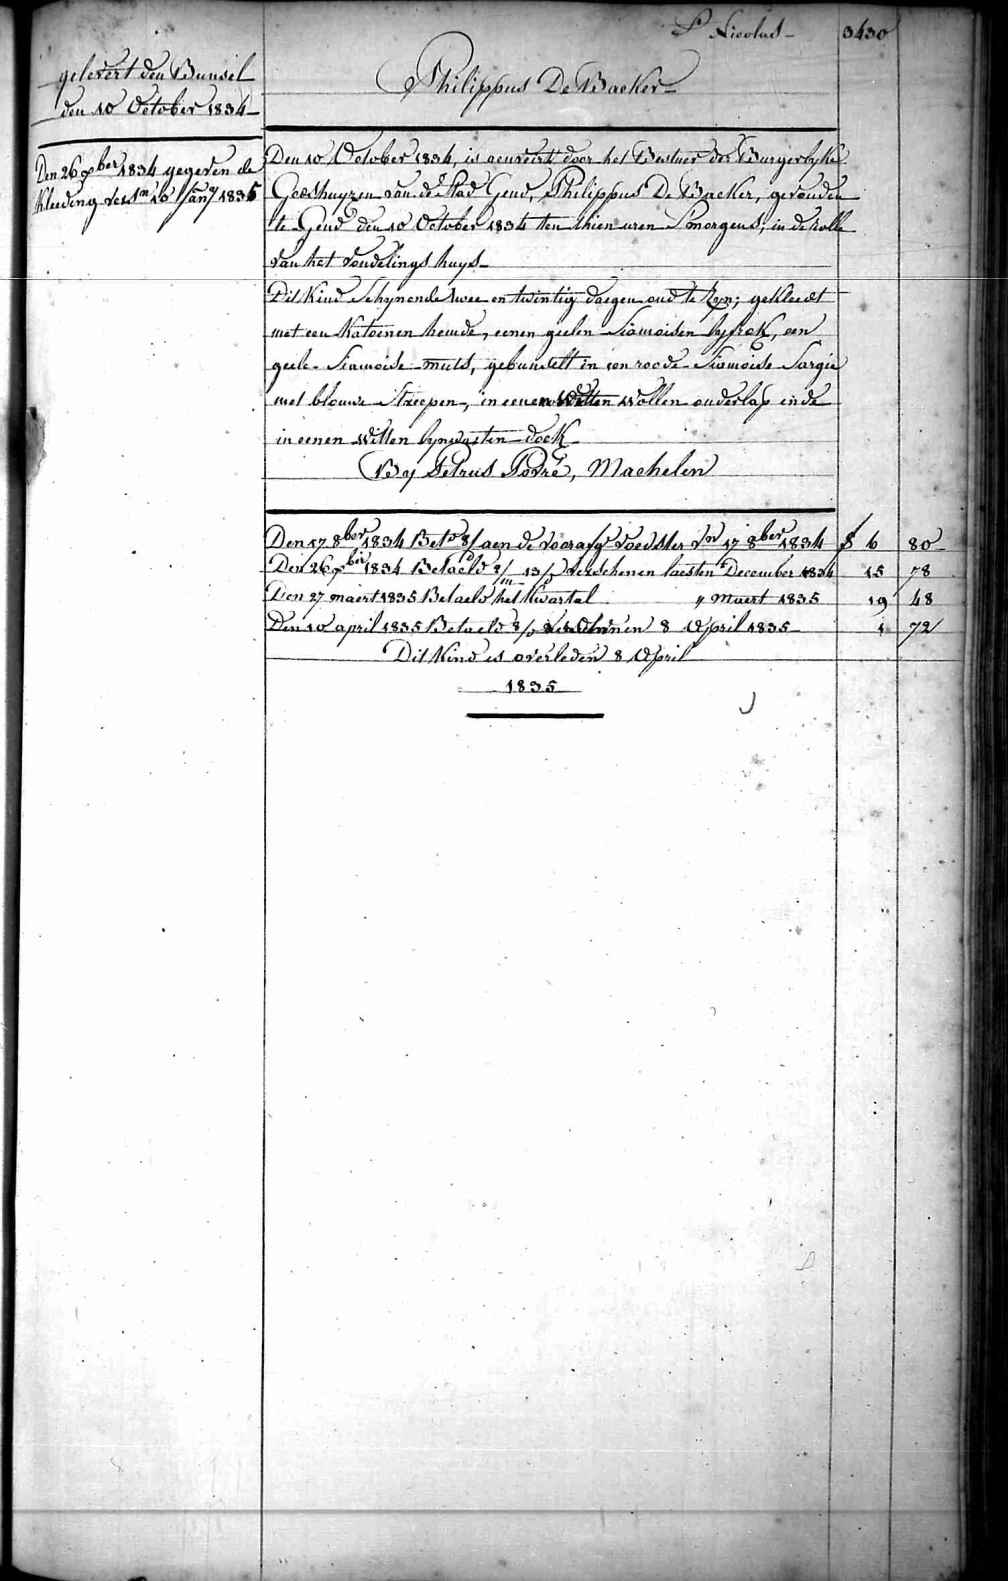 St Nicolas 3430
gelevert den Bunsel
den 10 October 1834
Philippus De Backer
Den 26 xber 1834 gegeven de
kleeding verssn 16 jany 1835
Den 10 October 1834, is aenveird door het Bestuer der Burgerlyke
Godshuyzen van de Stad Gend, Philippus De Backer, gevonden
te Gend den 10 October 1834 ten thien uren S'morgens; in de rolle
van het vondelings huys
Dit Kind schynende twee en twintig daegen oud te zyn; gekleedt
met een katoenen hemde, eenen geelen Siamoisen lyfrok, een
geele Siamoise muts, gebunselt in een roode Siamoise Sargie
met blouwe Streepen, in eenen witten wollen onderlap ende
in eenen witten lynwaeten doek
By Petrus Porré, Machelen
Den 17 8ber 1834 Betd aen de voorafge voedster van 17 8ber 1834 f 6 80
Den 26 xber 1834 Betaeld 2/m 13/d verschenen laesten December 1834 15 78
Den 27 maert 1835 Betaeld het kwartal " Maert 1835 19 48
Den 10 april 1835 Betaeld 8/d verschenen 8 April 1835 1 72
Dit Kind is overleden 8 April
1835